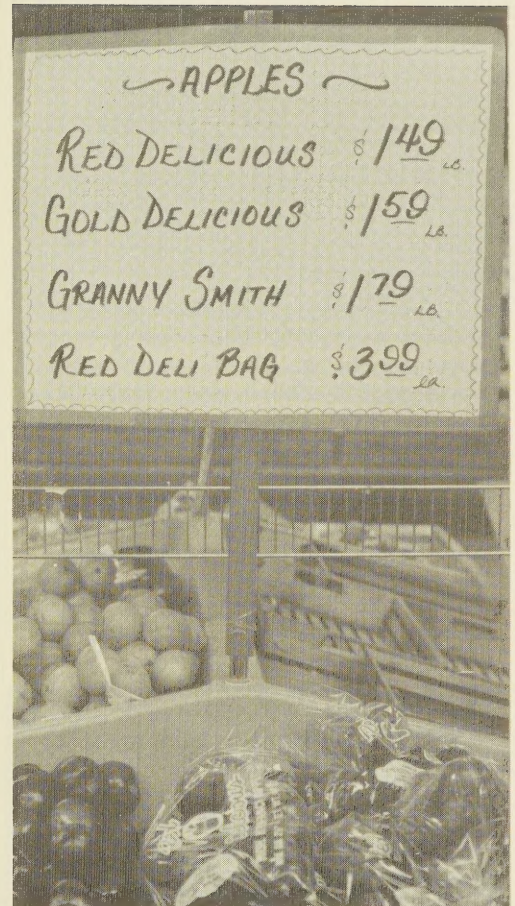 APPLES
RED DELICIOUS $1.49 LB.
GOLD DELICIOUS $1.59 LB.
GRANNY SMITH $1.79 LB.
RED DELI BAG $3.99 ea.